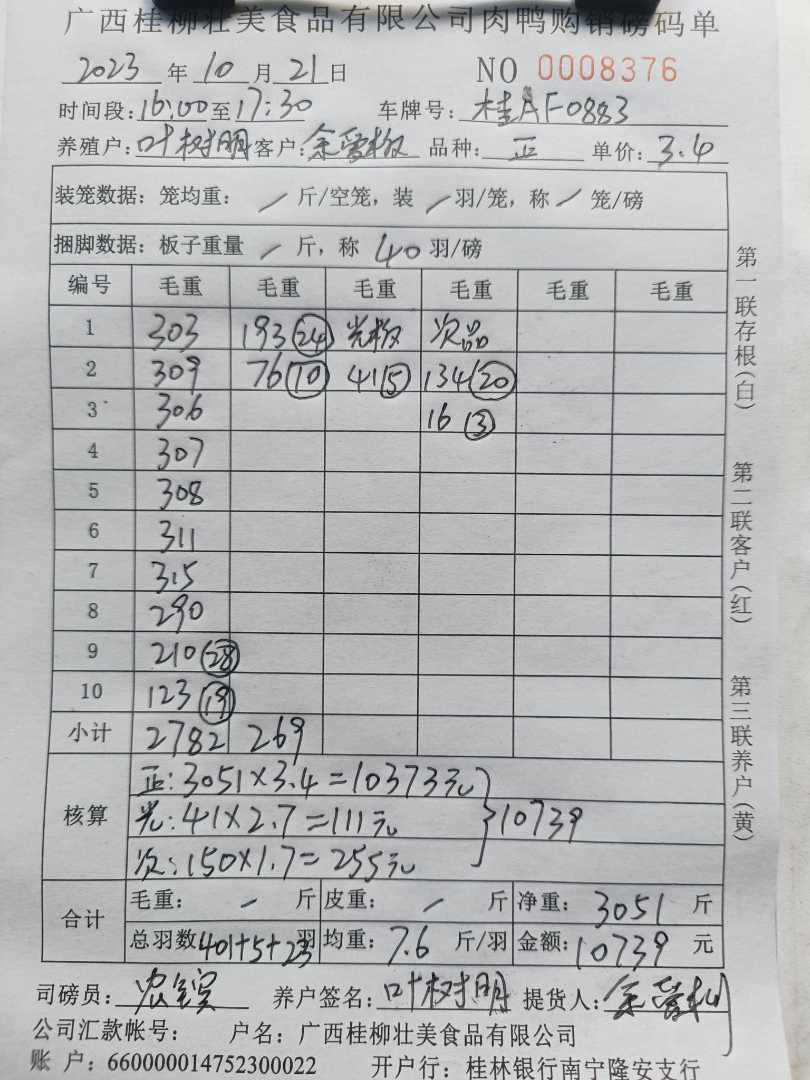 广西桂柳壮美食品有限公司肉鸭购销磅码单
2023 年 10 月 21 日 NO 0008376
时间段: 16:00 至 17:30 车牌号: 桂AF0883
养殖户: 叶树明 客户: 品种: 正 单价: 3.4
装笼数据: 笼均重: / 斤/空笼, 装 / 羽/笼, 称 / 笼/磅
捆脚数据: 板子重量 / 斤, 称 40 羽/磅
编号 毛重 毛重 毛重 毛重 毛重 毛重
1 303 193(24) 光板 次品
2 309 76(10) 41(5) 134(20)
3 306 16(3)
4 307
5 308
6 311
7 315
8 290
9 210(28)
10 123(19)
小计 2782 269
核算
正: 3051×3.4=10373元
光: 41×2.7=111元 }10739
次: 150×1.7=255元
合计
毛重: / 斤 皮重: / 斤 净重: 3051 斤
总羽数 401+5+23 羽 均重: 7.6 斤/羽 金额: 10739 元
司磅员: 养户签名: 叶树明 提货人:
公司汇款帐号: 户名: 广西桂柳壮美食品有限公司
账 户: 660000014752300022 开户行: 桂林银行南宁隆安支行
第一联存根(白)
第二联客户(红)
第三联养户(黄)